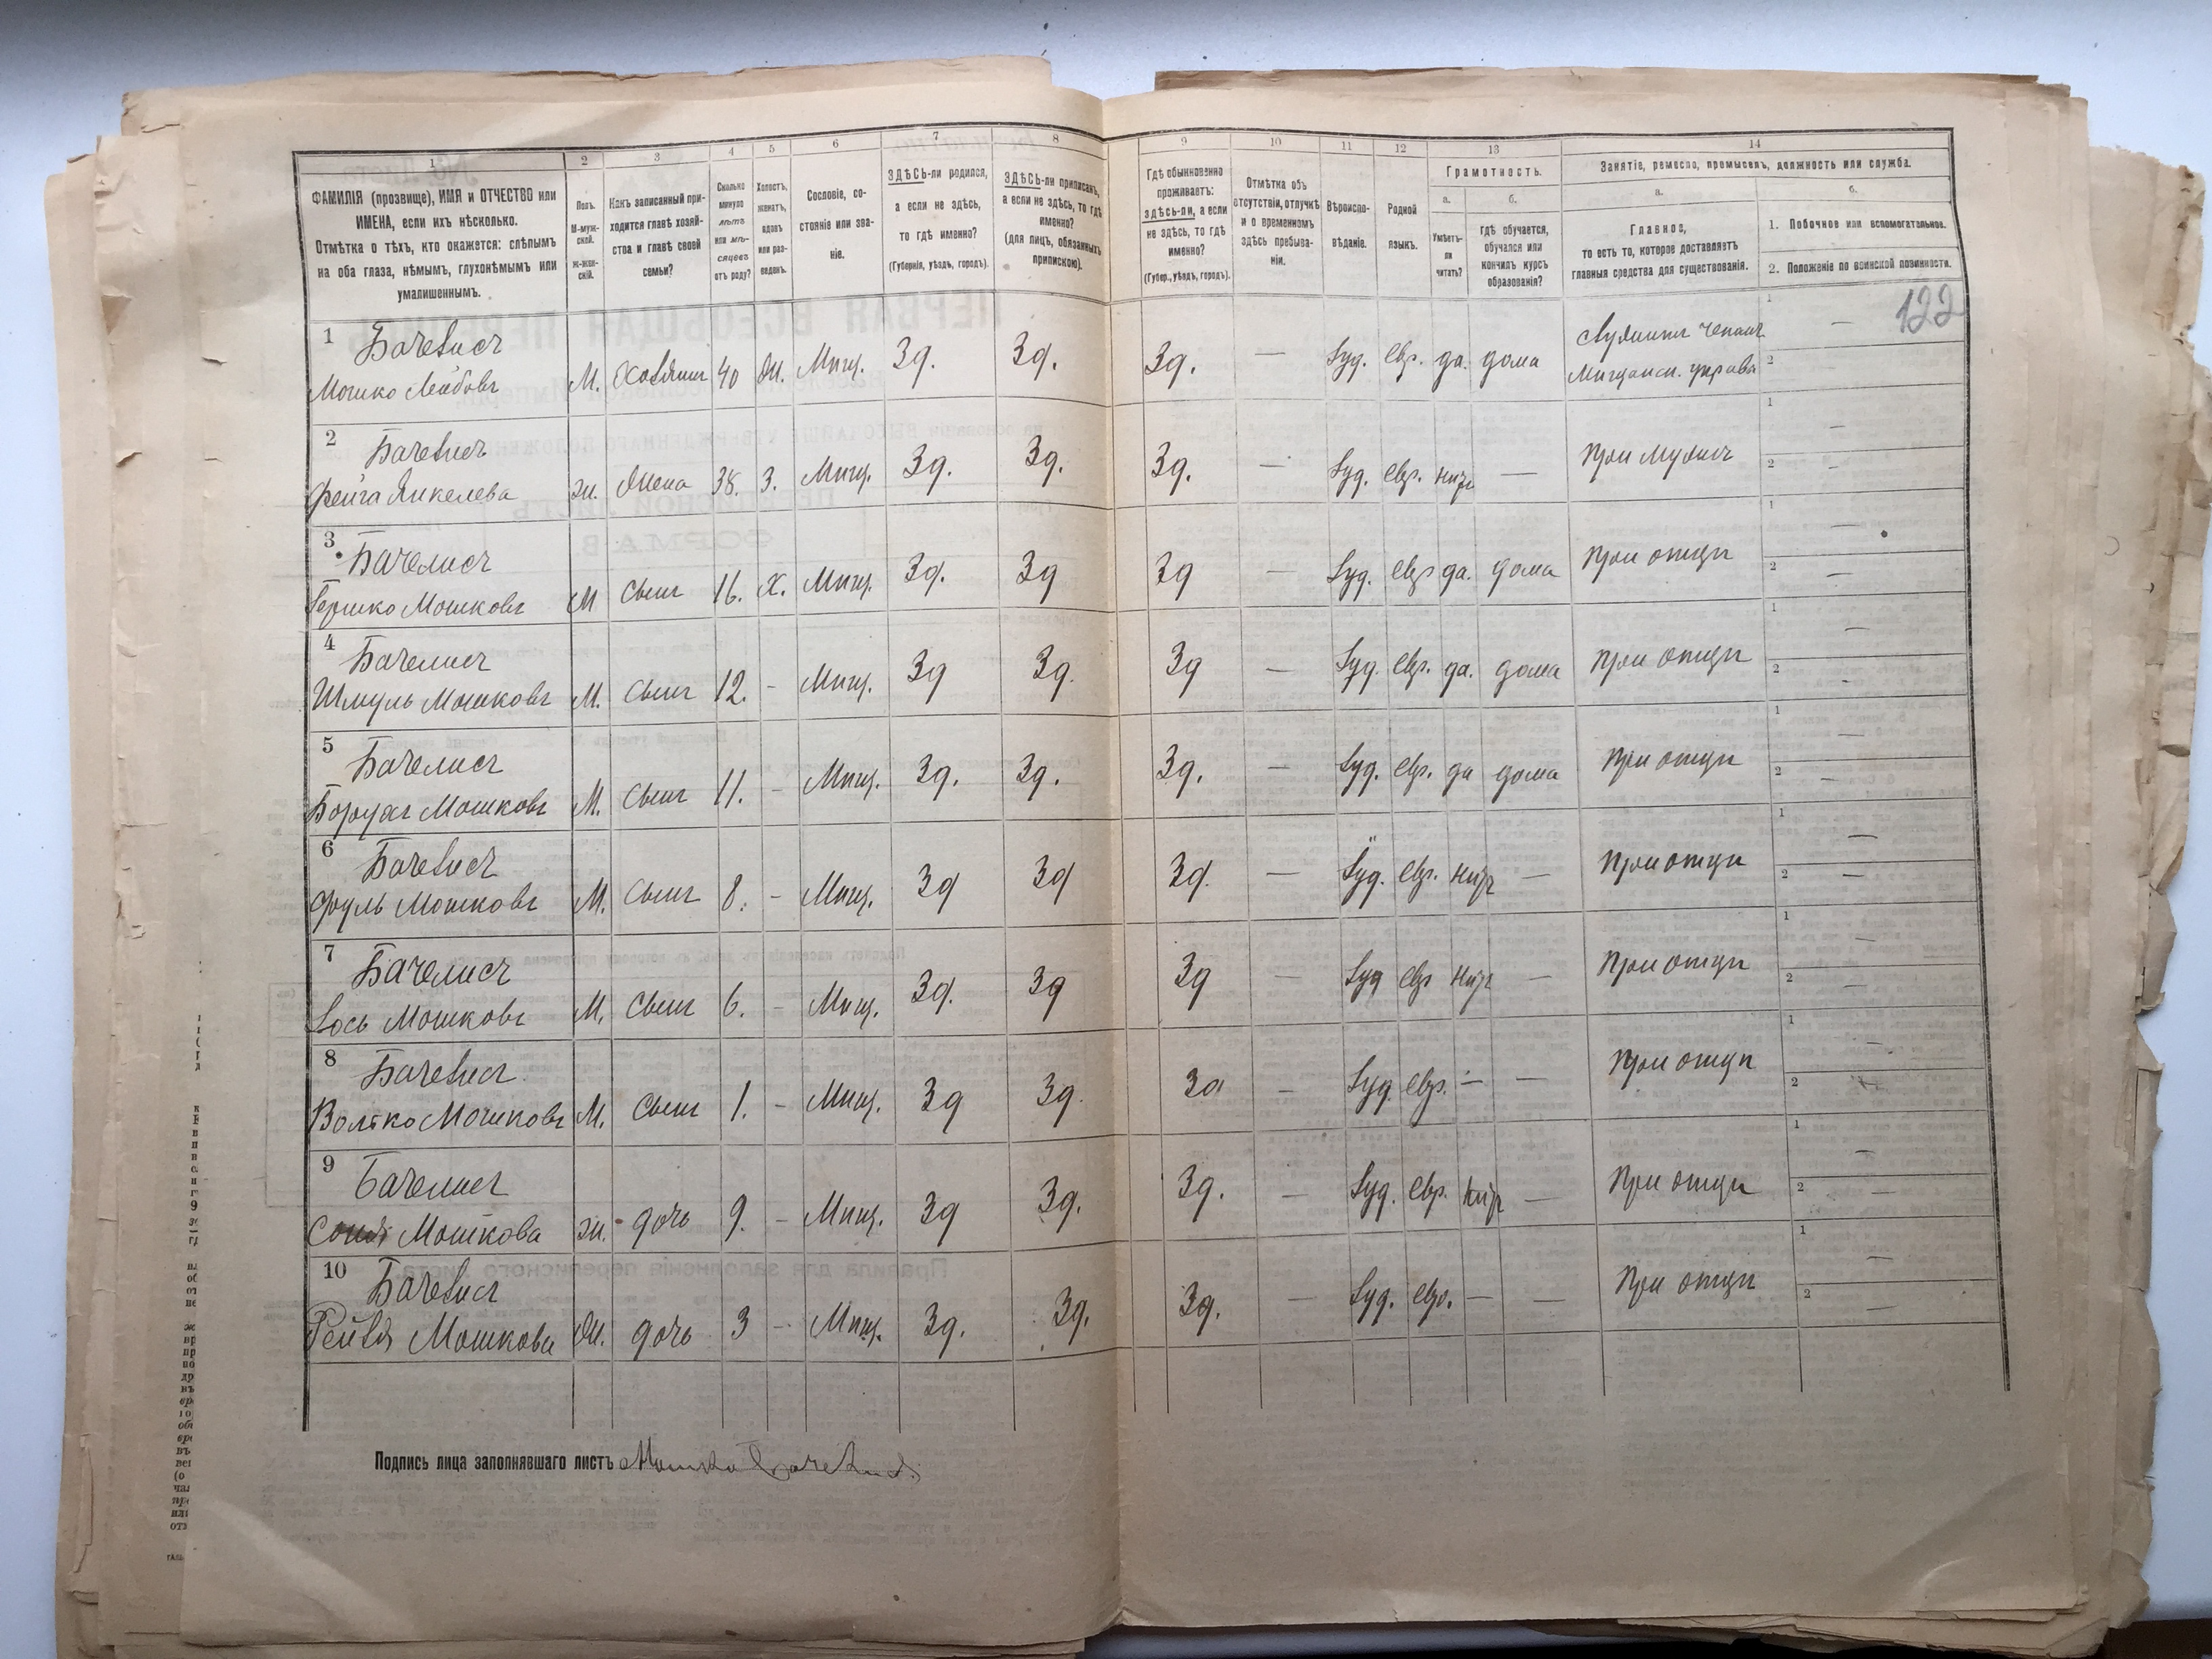 1 2 3 4 5 6 7 8 9 10 11 12 13 14
ФАМИЛІЯ (прозвище), ИМЯ и ОТЧЕСТВО или
ИМЕНА, если ихъ нѣсколько.
Отмѣтка о тѣхъ, кто окажется: слѣпымъ
на оба глаза, нѣмымъ, глухонѣмымъ или
умалишеннымъ.
Полъ.
М-муж-
ской.
ж-жен-
скій.
Какъ записанный при-
ходится главѣ хозяй-
ства и главѣ своей
семьи?
Сколько
минуло
лѣтъ
или мѣ-
сяцевъ
отъ роду?
Холостъ,
женатъ,
вдовъ
или раз-
веденъ.
Сословіе, со-
стояніе или зва-
ніе.
ЗДѢСЬ-ли родился,
а если не здѣсь,
то гдѣ именно?
(Губернія, уѣздъ, городъ).
ЗДѢСЬ-ли приписанъ,
а если не здѣсь, то гдѣ
именно?
(для лицъ, обязанныхъ
припискою).
Гдѣ обыкновенно
проживаетъ:
здѣсь-ли, а если
не здѣсь, то гдѣ
именно?
(Губер., уѣздъ, городъ).
Отмѣтка объ
отсутствіи, отлучкѣ
и о временномъ
здѣсь пребыва-
ніи.
Вѣроиспо-
вѣданіе.
Родной
языкъ.
Грамотность.
а. б.
Умѣетъ-
ли
читать?
гдѣ обучается,
обучался или
кончилъ курсъ
образованія?
Занятіе, ремесло, промыселъ, должность или служба.
а. б.
Главное,
то есть то, которое доставляетъ
главныя средства для существованія.
1. Побочное или вспомогательное.
2. Положеніе по воинской повинности.
122
1 Бачелисъ
Мошко Лейбовъ М. Хозяинъ 40 Ж. Мѣщ. Зд. Зд. Зд. — Іуд. евр. да. дома
Мѣщанск. управы
2 Бачелисъ
Фейга Янкелева ж. Жена 38. З. Мѣщ. Зд. Зд. Зд. — Іуд. евр. нѣтъ — При мужѣ
3 Бачелисъ
Гершко Мошковъ М Сынъ 16. Х. Мѣщ. Зд. Зд Зд — Іуд. евр да. дома При отцѣ
4 Бачелисъ
Шмуль Мошковъ М. Сынъ 12. - Мѣщ. Зд Зд. Зд — Іуд. евр. да. дома При отцѣ
5 Бачелисъ
Борухъ Мошковъ М. Сынъ 11. - Мѣщ. Зд. Зд. Зд. — Іуд. евр. да дома При отцѣ
6 Бачелисъ
Сруль Мошковъ М. Сынъ 8. - Мѣщ. Зд Зд Зд. — Іуд. евр. нѣтъ — При отцѣ
7 Бачелисъ
Іось Мошковъ М. Сынъ 6. - Мѣщ. Зд. Зд Зд — Іуд евр нѣтъ — При отцѣ
8 Бачелисъ
Волько Мошковъ М. Сынъ 1. - Мѣщ. Зд Зд. Зд — Іуд. евр. — — При отцѣ
9 Бачелисъ
Соня Мошкова ж. дочь 9. - Мѣщ. Зд Зд. Зд. — Іуд. евр. нѣтъ — При отцѣ
10 Бачелисъ
Рейзя Мошкова Ж. дочь 3 - Мѣщ. Зд. Зд. Зд. — Іуд. евр. — — При отцѣ
Подпись лица заполнявшаго листъ Мошко Бачелисъ